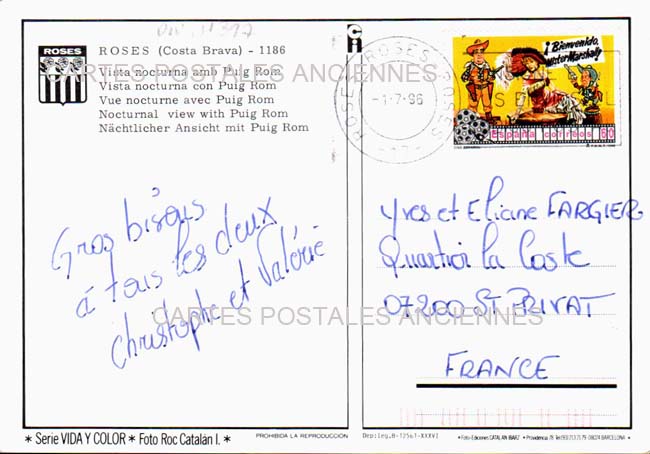 ROSES
ROSES (Costa Brava) - 1186
Vista nocturna amb Puig Rom
Vista nocturna con Puig Rom
Vue nocturne avec Puig Rom
Nocturnal view with Puig Rom
Nächtlicher Ansicht mit Puig Rom
CARTES POSTALES ANCIENNES
ROSES
-1.7.96
¡Bienvenido,
Mister Marshall!
España correos 60
Gros bisous
à tous les deux
Christophe et Valérie
Yves et Eliane FARGIER
Quartier la Coste
07200 ST PRIVAT
FRANCE
CARTES POSTALES ANCIENNES
* Serie VIDA Y COLOR * Foto Roc Catalán I. *
PROHIBIDA LA REPRODUCCIÓN
Dep: leg. B-12561-XXXVI